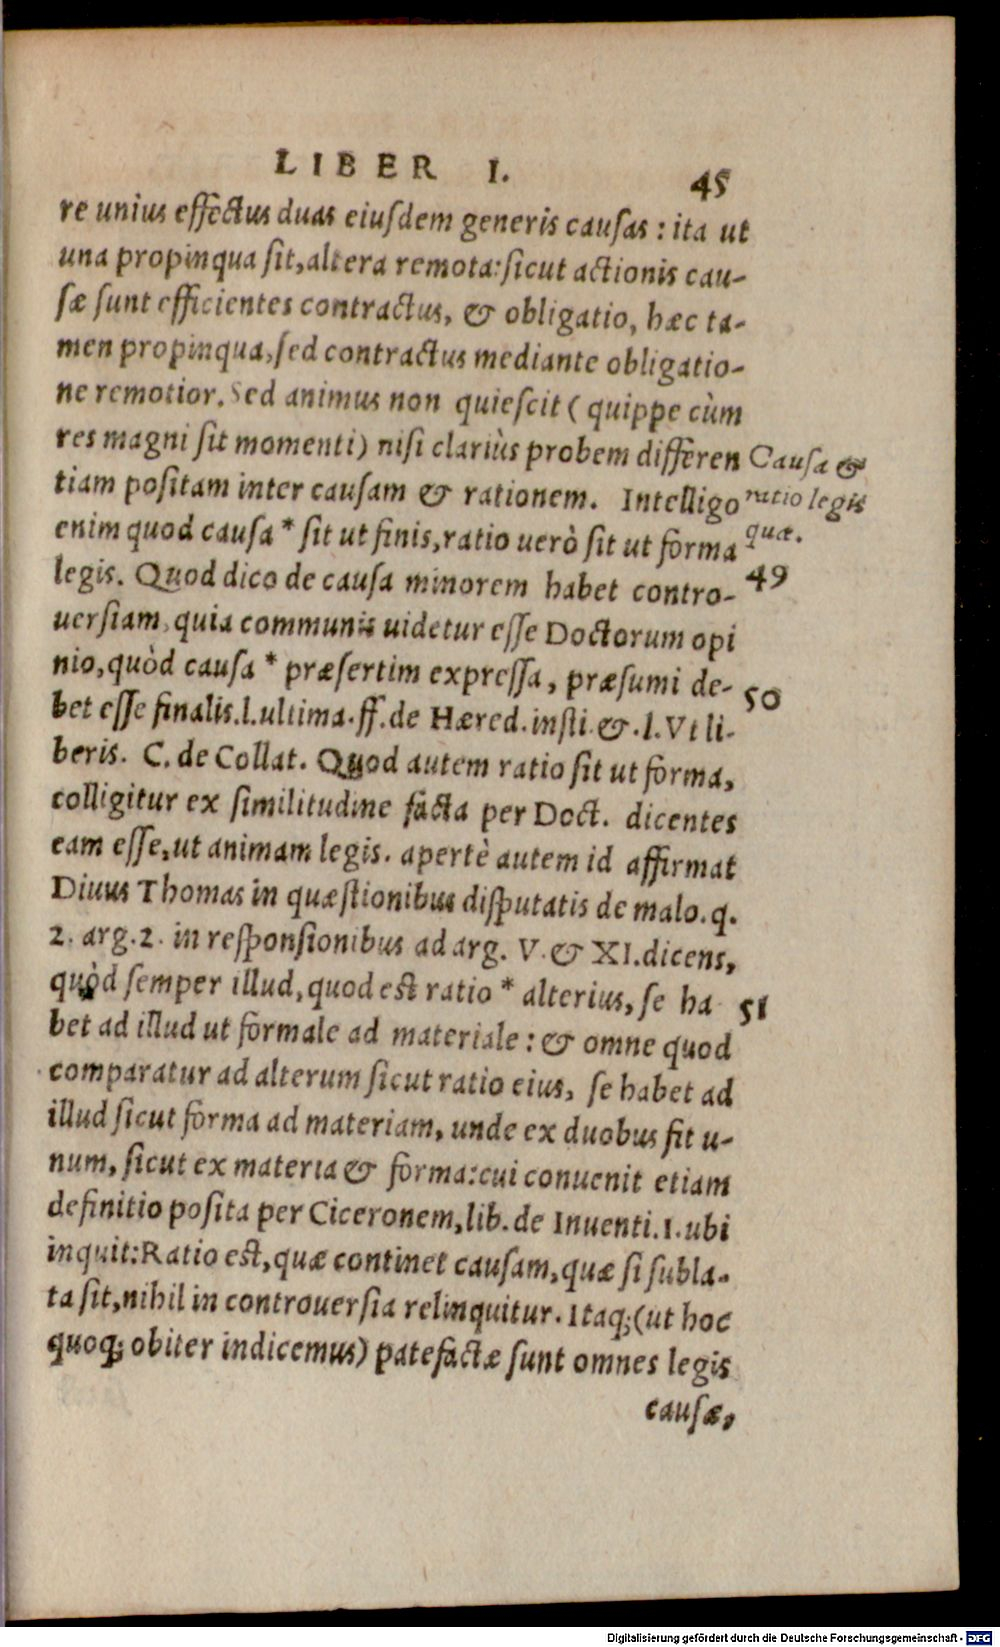 LIBER I. 45
re unius effectus duas eiusdem generis causas : ita ut
una propinqua sit, altera remota: sicut actionis cau-
sæ sunt efficientes contractus, & obligatio, hæc ta-
men propinqua, sed contractus mediante obligatio-
ne remotior. Sed animus non quiescit ( quippe cùm
res magni sit momenti) nisi clariùs probem differen
Causa &
tiam positam inter causam & rationem. Intelligo
ratio legis
enim quod causa * sit ut finis, ratio uerò sit ut forma
quæ.
legis. Quod dico de causa minorem habet contro-
49
uersiam, quia communis uidetur esse Doctorum opi
nio, quòd causa * præsertim expressa, præsumi de-
50
bet esse finalis. l. ultima. ff. de Hæred. insti. &. l. Vt li-
beris. C. de Collat. Quod autem ratio sit ut forma,
colligitur ex similitudine facta per Doct. dicentes
eam esse, ut animam legis. apertè autem id affirmat
Diuus Thomas in quæstionibus disputatis de malo. q.
2. arg. 2. in responsionibus ad arg. V. & XI. dicens,
quòd semper illud, quod est ratio * alterius, se ha
51
bet ad illud ut formale ad materiale : & omne quod
comparatur ad alterum sicut ratio eius, se habet ad
illud sicut forma ad materiam, unde ex duobus fit u-
num, sicut ex materia & forma: cui conuenit etiam
definitio posita per Ciceronem, lib. de Inuenti. 1. ubi
inquit: Ratio est, quæ continet causam, quæ si subla-
ta sit, nihil in controuersia relinquitur. Itaq; (ut hoc
quoq; obiter indicemus) patefactæ sunt omnes legis
causæ,
Digitalisierung gefördert durch die Deutsche Forschungsgemeinschaft - DFG